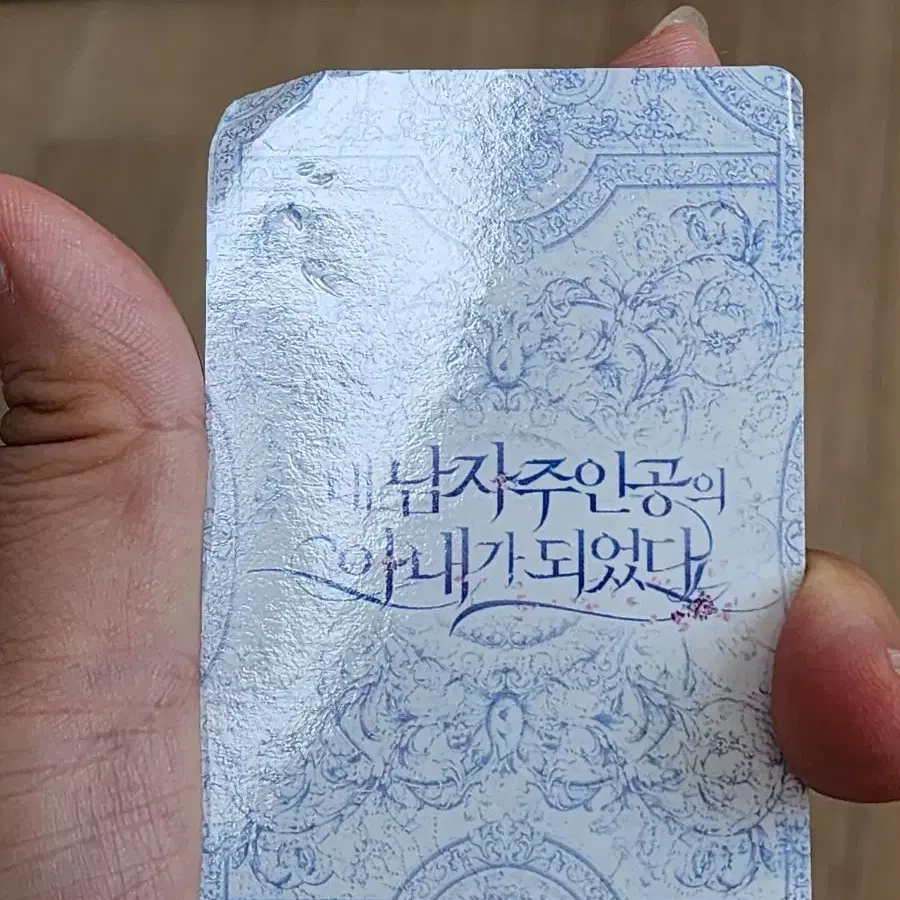 내 남자주인공의
아내가 되었다